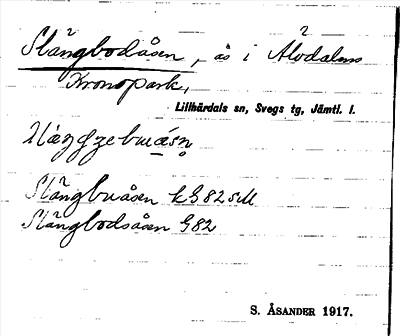 Slångbodåsen, ås i Älvdalens
Kronopark,
Lillhärdals sn, Svegs tg, Jämtl. l.
Slångbuåsen kG82sM
Slångbodsåsen G82
S. ÅSANDER 1917.